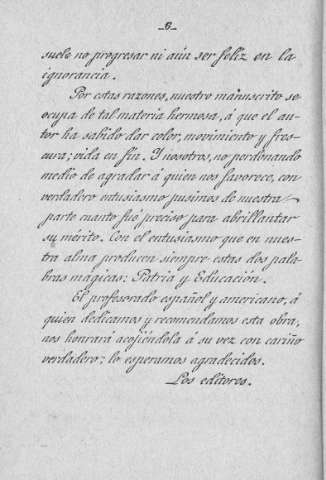 —6—
suele no progresar ni aún ser feliz en la
ignorancia.
Por estas razones, nuestro manuscrito se
ocupa de tal materia hermosa, á que el au-
tor ha sabido dar color, movimiento y fres-
cura; vida en fin. Y nosotros, no perdonando
medio de agradar á quien nos favorece, con
verdadero entusiasmo pusimos de nuestra
parte cuanto fué preciso para abrillantar
su mérito. Con el entusiasmo que en nues-
tra alma producen siempre estas dos pala-
bras mágicas: Patria y Educación.
El profesorado español y americano, á
quien dedicamos y recomendamos esta obra,
nos honrará acojiéndola á su vez con cariño
verdadero; lo esperamos agradecidos.
Los editores.